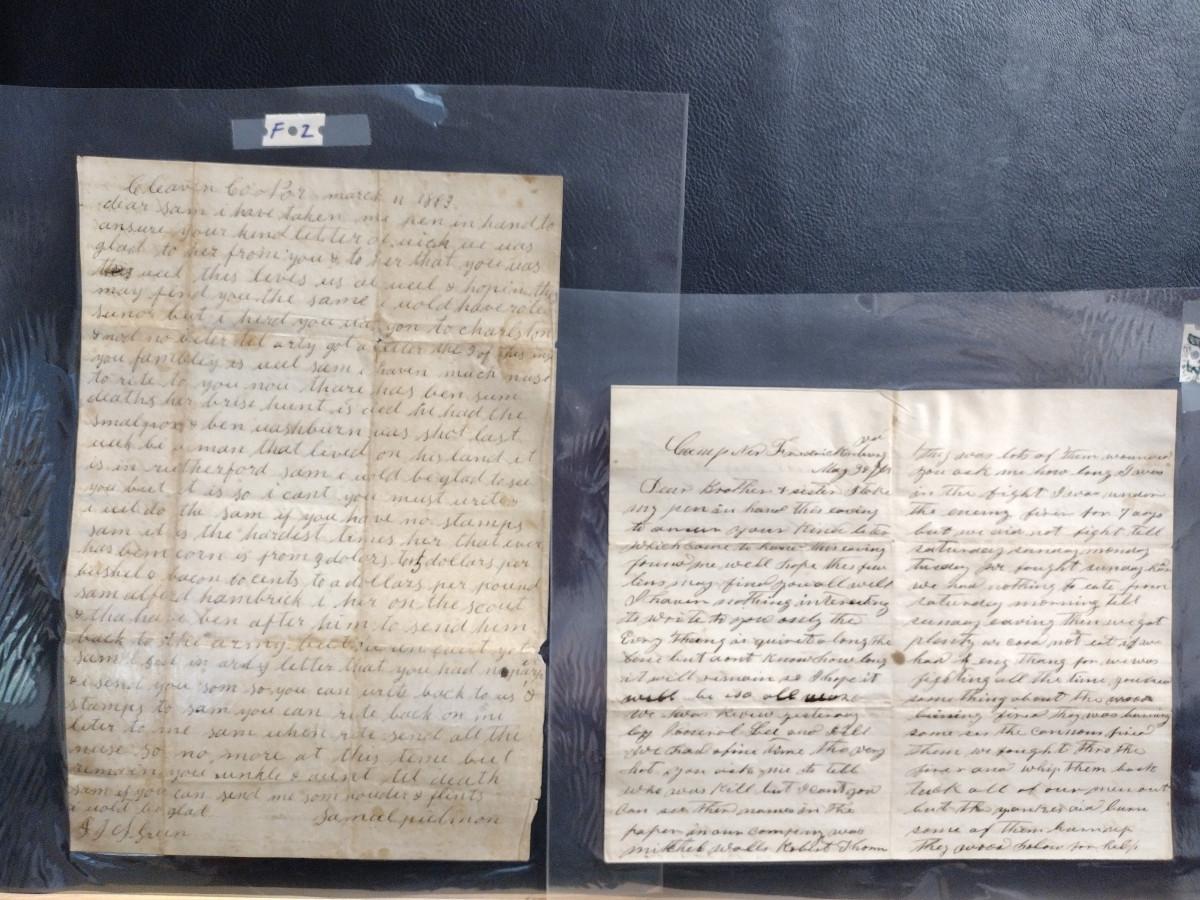 F 2
Cleaven Co march 11 1863
dear Sam i have taken me pen in hand to
ansure your kind letter wich we was
glad to her from you & to her that you was
well this leves us al well & hopin the
may find you the same i wold have rote
suner but i herd you was gon to charlston
& no leter tel arty got a letter the 5 of this
you fambley is wel sam i haven much nuse
to rite to you now thare has ben sum
deaths her brise hunt is ded he had the
smalpox & ben washburn was shot last
wek bi a man that lived on his land it
is in rutherford sam i wold be glad to see
you but it is so i cant you must write &
i wil do the sam if you have no stamps
sam it is the hardest times her that ever
has bem corn is from 3 dolors to 5 dollars per
bushel & bacon to cents to a dollars per pound
sam alferd hambrick i her on the scout
& tha hav ben after him to send him
back to the army but
sam i see in ardy letter that you had no
& i send you som so you can write back to us &
stamps to sam you can rite back on me
leter to me sam when rite send all the
nuse so no more at this time but
remain you unkle & aunt tel death
sam if you can send me som powder & flints
i wold be glat
J Green
Camp Near Fredericksburg
May 30
Dear Brother & sister I take
my pen in hand this eaving
to your kind leter
which came to hand this eaving
found me well hope these few
lins may find you all well
I haven nothing interesting
to write to you only the
Evry thang is quiret along the
line but dont know how long
it will remain so I hope it
will be so all
We was Review yesterday
by General Lee and
We had a fine time tho very
hot you ask me to tell
who was kill but I cant you
can see ther names in the
paper in our company was
mitchel walls Robert
thay was lots of them wounded
you ask me how long I was
in the fight I was under
the enemy fier for 7 days
but we did not fight till
saturday sunday monday
tusday we fought sunday
we had nothing to eate from
saturday morning till
sunday eaving then we got
plenty we coud not eat if we
had eny thang for we was
fighting all the time you
some thing about the woods
burning fired they was burning
some as the cannons fired
them we fought thro the
fiver and whip them back
took all of our men out
but the yankees did burn
some of them burn up
They wood holow for help